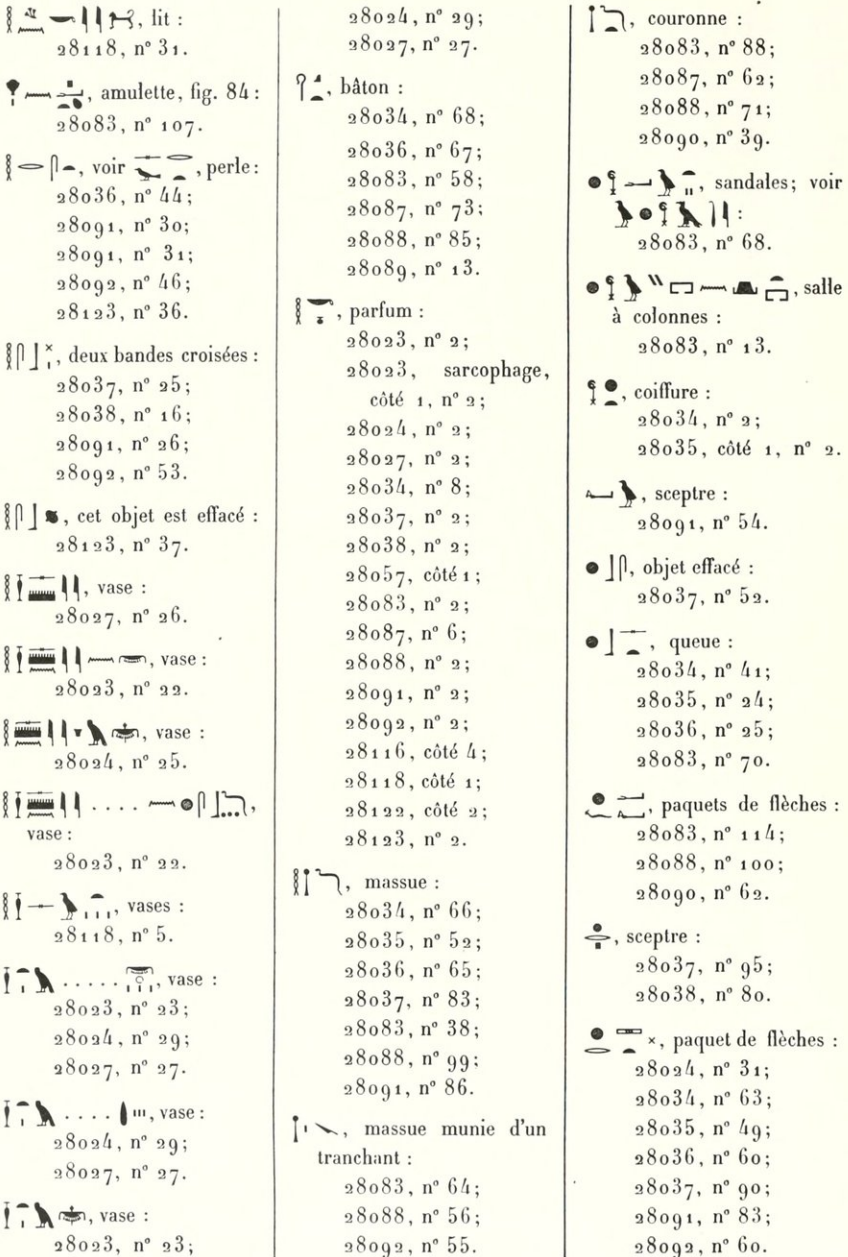 , lit :
28118, n° 31.
, amulette, fig. 84 :
28083, n° 107.
, voir , perle :
28036, n° 44;
28091, n° 30;
28091, n° 31;
28092, n° 46;
28123, n° 36.
, deux bandes croisées :
28037, n° 25;
28038, n° 16;
28091, n° 26;
28092, n° 53.
, cet objet est effacé :
28123, n° 37.
, vase :
28027, n° 26.
, vase :
28023, n° 22.
, vase :
28024, n° 25.
. . . . ,
vase :
28023, n° 22.
, vases :
28118, n° 5.
. . . . . , vase :
28023, n° 23;
28024, n° 29;
28027, n° 27.
. . . . , vase :
28024, n° 29;
28027, n° 27.
, vase :
28023, n° 23;
28024, n° 29;
28027, n° 27.
, bâton :
28034, n° 68;
28036, n° 67;
28083, n° 58;
28087, n° 73;
28088, n° 85;
28089, n° 13.
, parfum :
28023, n° 2;
28023, sarcophage,
côté 1, n° 2;
28024, n° 2;
28027, n° 2;
28034, n° 8;
28037, n° 2;
28038, n° 2;
28057, côté 1;
28083, n° 2;
28087, n° 6;
28088, n° 2;
28091, n° 2;
28092, n° 2;
28116, côté 4;
28118, côté 1;
28122, côté 2;
28123, n° 2.
, massue :
28034, n° 66;
28035, n° 52;
28036, n° 65;
28037, n° 83;
28083, n° 38;
28088, n° 99;
28091, n° 86.
, massue munie d'un
tranchant :
28083, n° 64;
28088, n° 56;
28092, n° 55.
, couronne :
28083, n° 88;
28087, n° 62;
28088, n° 71;
28090, n° 39.
, sandales; voir
:
28083, n° 68.
, salle
à colonnes :
28083, n° 13.
, coiffure :
28034, n° 2;
28035, côté 1, n° 2.
, sceptre :
28091, n° 54.
, objet effacé :
28037, n° 52.
, queue :
28034, n° 41;
28035, n° 24;
28036, n° 25;
28083, n° 70.
, paquets de flèches :
28083, n° 114;
28088, n° 100;
28090, n° 62.
, sceptre :
28037, n° 95;
28038, n° 80.
, paquet de flèches :
28024, n° 31;
28034, n° 63;
28035, n° 49;
28036, n° 60;
28037, n° 90;
28091, n° 83;
28092, n° 60.